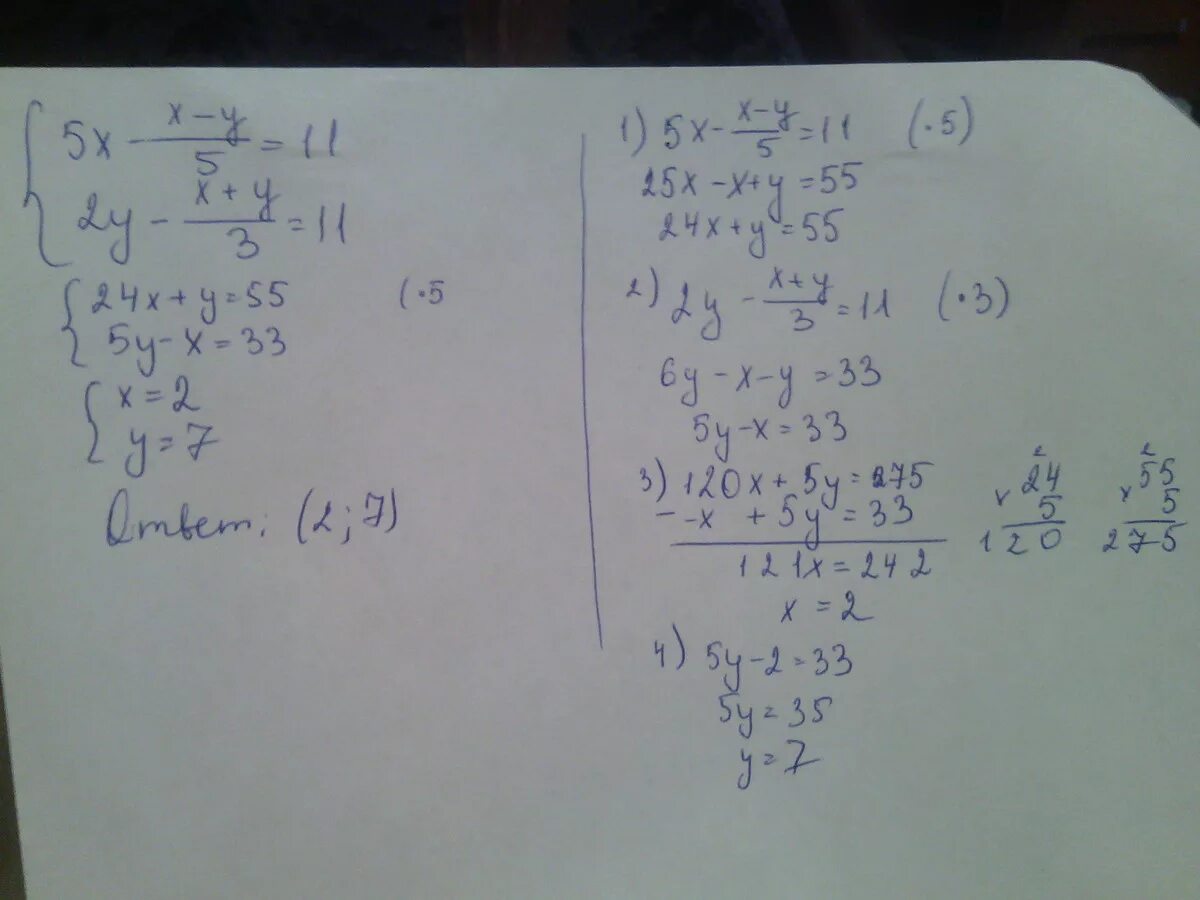 5x - (x-y)/5 = 11
2y - (x+y)/3 = 11
24x+y=55 (·5
5y-x=33
x=2
y=7
Ответ: (2;7)
1) 5x - (x-y)/5 = 11 (·5)
25x-x+y=55
24x+y=55
2) 2y - (x+y)/3 = 11 (·3)
6y-x-y=33
5y-x=33
3) 120x+5y=275
- -x+5y=33
121x=242
x=2
4) 5y-2=33
5y=35
y=7
2
× 24
5
120
2
× 55
5
275